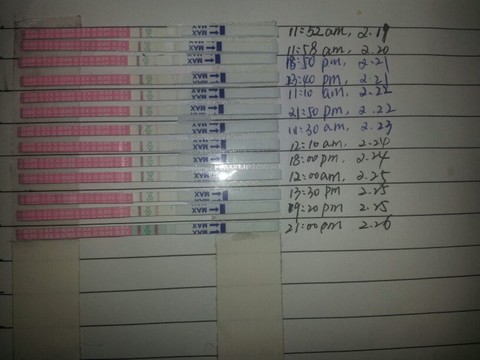 11:52 am, 2.19
11:58 am, 2.20
18:50 pm, 2.21
23:40 pm, 2.21
11:10 am, 2.22
21:50 pm, 2.22
11:30 am, 2.23
12:10 am, 2.24
18:00 pm, 2.24
12:00 am, 2.25
13:30 pm 2.25
19:20 pm 2.25
21:00 pm 2.26
MAX
MAX
MAX
MAX
MAX
MAX
MAX
MAX
MAX
MAX
MAX
MAX
MAX